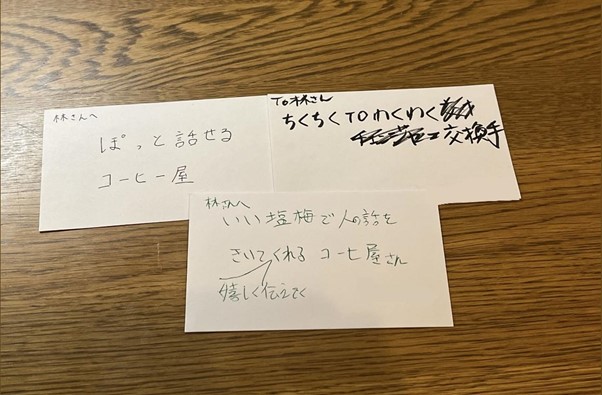 林さんへ
ぽっと話せる
コーヒー屋
To 林さん
ちくちく TO わくわく
交換手
林さんへ
いい塩梅で人の話を
きいてくれる コーヒ屋さん
優しく伝えてく